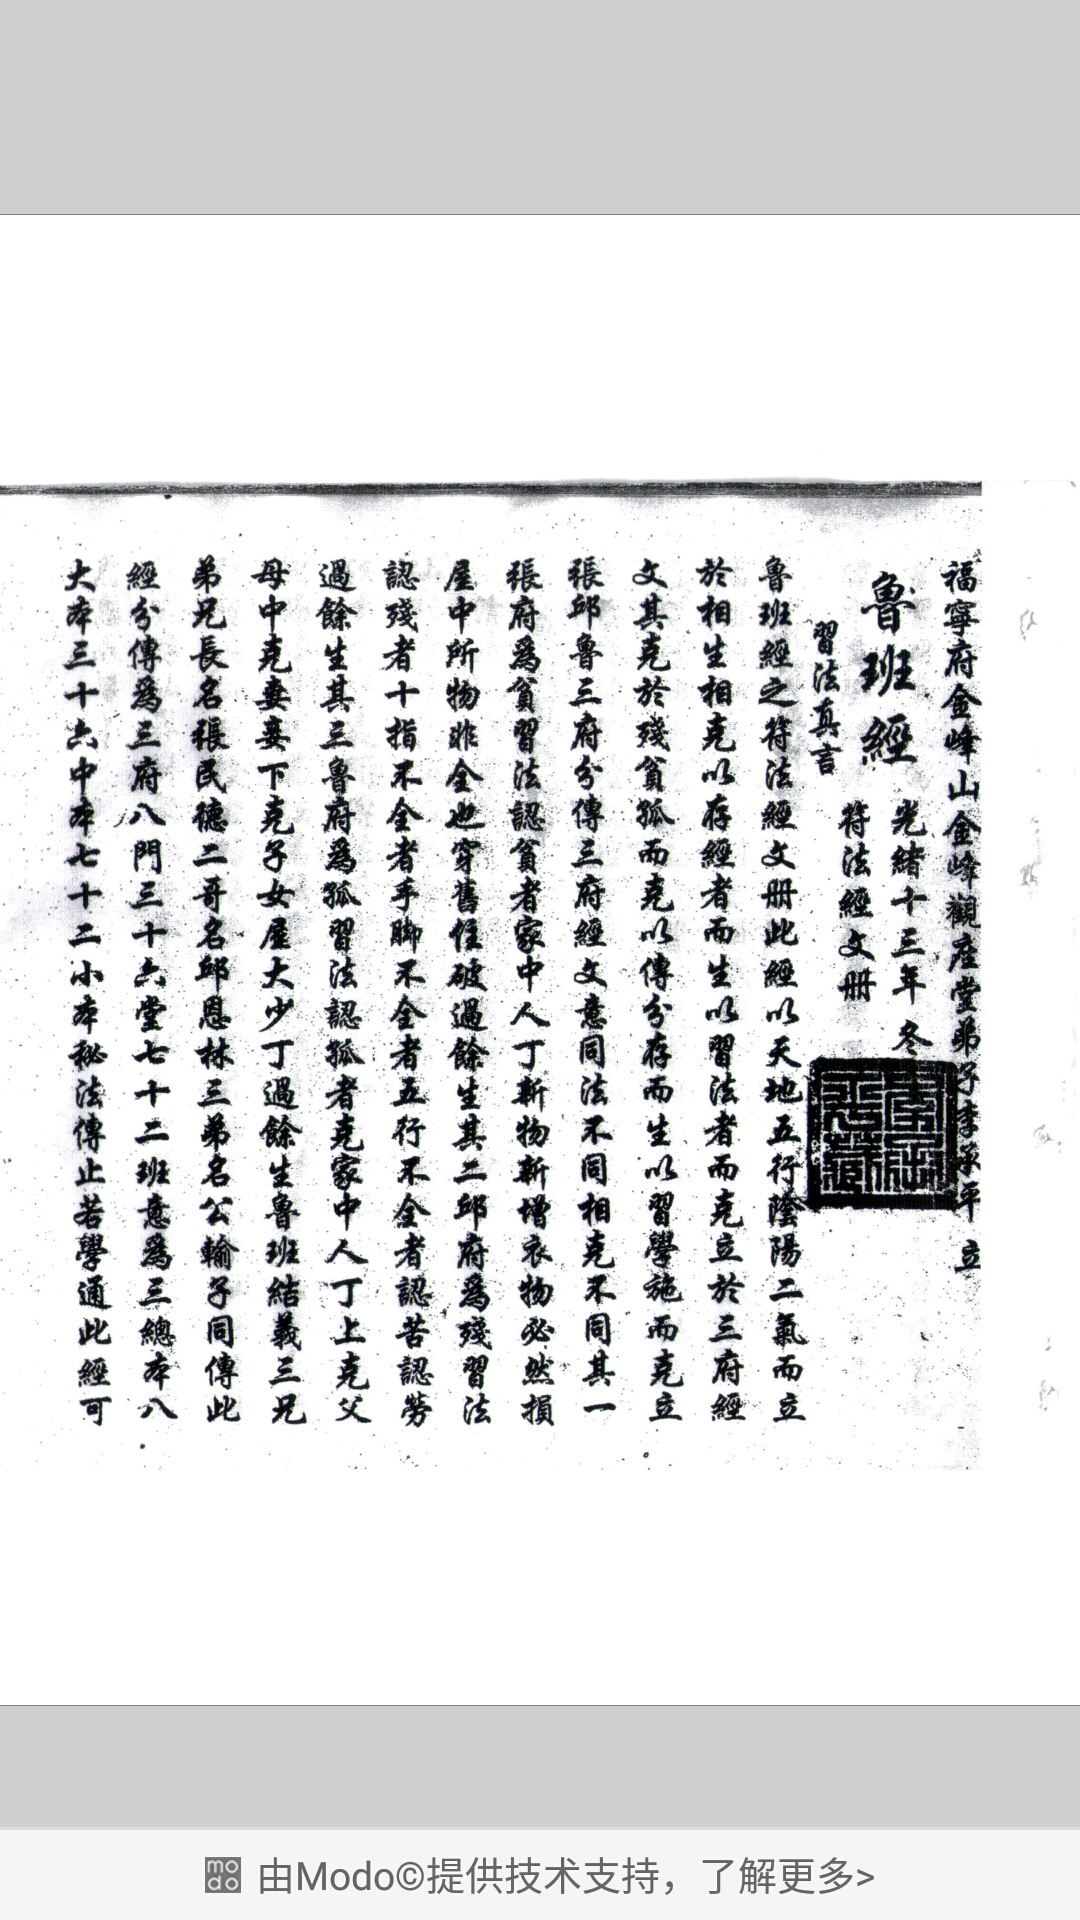 福寧府金峰山金峰觀產堂弟子李承平立
魯班經 光緒十三年冬
符法經文册
習法真言
魯班經之符法經文册此經以天地五行陰陽二氣而立
於相生相克以存經者而生以習法者而克立於三府經
文其克於殘貧孤而克以傳分存而生以習學施而克立
張邱魯三府分傳三府經文意同法不同相克不同其一
張府為貧習法認貧者家中人丁新物新增衣物必然損
屋中所物非全也穿舊住破過餘生其二邱府為殘習法
認殘者十指不全者手腳不全者五行不全者認苦認勞
過餘生其三魯府為孤習法認孤者克家中人丁上克父
母中克妻妾下克子女屋大少丁過餘生魯班結義三兄
弟兄長名張民德二哥名邱恩林三弟名公輸子同傳此
經分傳為三府八門三十六堂七十二班意為三總本八
大本三十六中本七十二小本秘法傳止若學通此經可
由Modo©提供技术支持，了解更多>